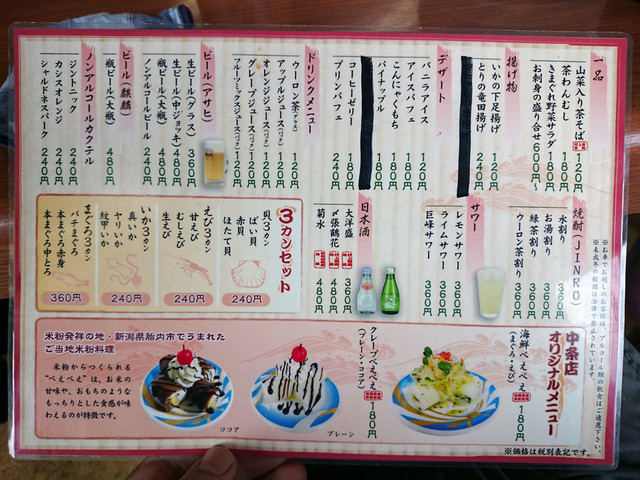 一品
山菜入り茶そば 120円
茶わんむし 180円
きまぐれ野菜サラダ 180円
お刺身の盛り合せ 600円~
揚げ物
いかの下足揚げ 120円
とりの竜田揚げ 240円
デザート
バニラアイス 120円
アイスパフェ 180円
こんにゃくもち 180円
パイナップル 180円
コーヒーゼリー 180円
プリンパフェ 240円
ドリンクメニュー
ウーロン茶(グラス) 120円
アップルジュース(パック) 120円
オレンジジュース(パック) 120円
グレープジュース(パック) 120円
フルーツミックスジュース(パック) 120円
ビール(アサヒ)
生ビール(グラス) 360円
生ビール(中ジョッキ) 480円
瓶ビール(大瓶) 480円
ノンアルコールビール 240円
ビール(麒麟)
瓶ビール(大瓶) 480円
ノンアルコールカクテル
ジントニック 240円
カシスオレンジ 240円
シャルドネスパーク 240円
※お車でお越しのお客様は、アルコール類の飲食はご遠慮下さい。
※未成年の飲酒は法律で禁止されています。
焼酎(JINRO)
水割り 360円
お湯割り 360円
緑茶割り 360円
ウーロン茶割り 360円
サワー
レモンサワー 360円
ライムサワー 360円
巨峰サワー 360円
日本酒
大洋盛 360円
〆張鶴花 480円
菊水 480円
3カンセット
貝3カン
ばい貝
赤貝
ほたて貝
240円
えび3カン
甘えび
むしえび
生えび
240円
いか3カン
真いか
ヤリいか
紋甲いか
240円
まぐろ3カン
バチまぐろ
本まぐろ赤身
本まぐろ中とろ
360円
中条店
オリジナルメニュー
海鮮べえべえ
(まぐろ・えび)
180円
クレープべえべえ
(プレーン・ココア)
180円
プレーン
ココア
米粉発祥の地・新潟県胎内市でうまれた
ご当地米粉料理
米粉からつくられる
"べえべえ"は、お米の
甘味や、おもちのような
もっちりとした食感が味
わえるのが特徴です。
※価格は税別表記です。